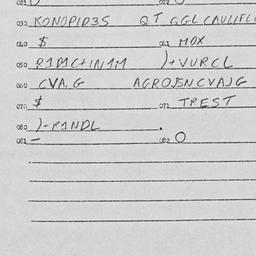 030 KONOPID3S QT GGL CAULIFL
040 $ 042 MOX
050 P1D1C+IN1M )+VURCL
060 CVA.G AGROJSNCVAJG
070 $ 072 TPEST
080 )-P1NDL .
081 - 082 O